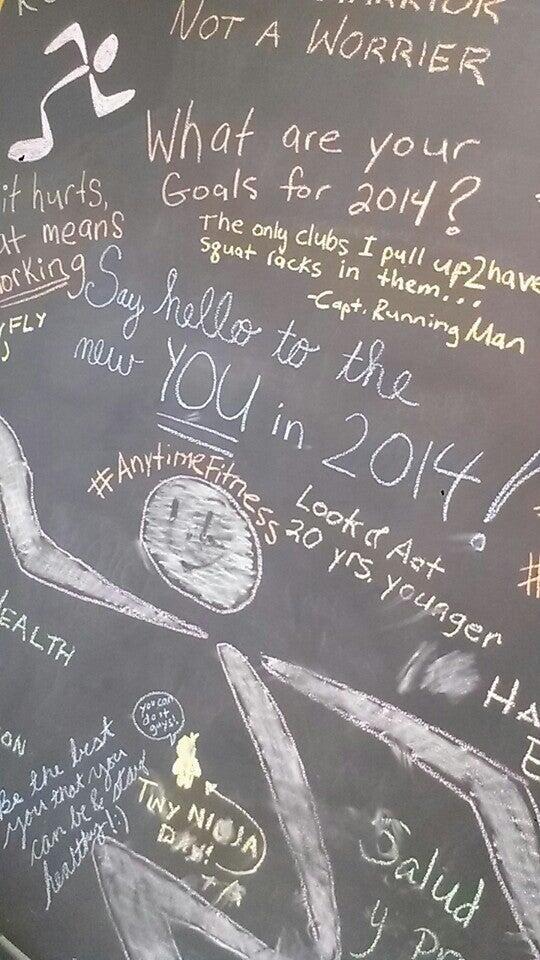 NOT A WORRIER
What are your
Goals for 2014?
it hurts,
at means
orking
The only clubs I pull up2have
squat racks in them...
-Capt. Running Man
FLY
Say hello to the
new YOU in 2014!
#AnytimeFitness
Look & Act
20 yrs. younger
#
EALTH
HA
E
ON
you can
do it
guys!
Be the best
you that you
can be &
healthy! :)
TINY NINJA
Salud
y